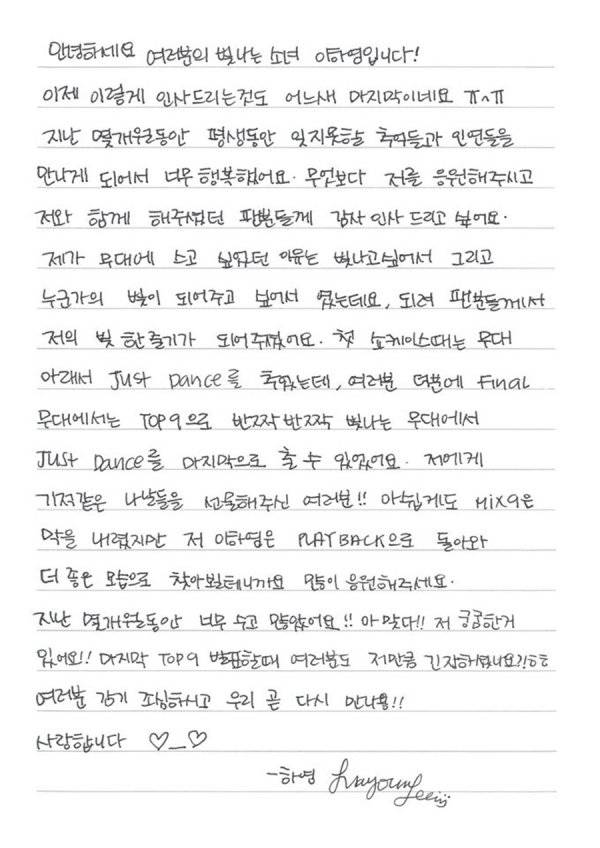 안녕하세요 여러분의 빛나는 소녀 이하영입니다!
이제 이렇게 인사드리는것도 어느새 마지막이네요 ㅠ^ㅠ
지난 몇개월동안 평생동안 잊지못할 추억들과 인연들을
만나게 되어서 너무 행복했어요. 무엇보다 저를 응원해주시고
저와 함께 해주셨던 팬분들께 감사 인사 드리고 싶어요.
제가 무대에 스고 싶었던 이유는 빛나고싶어서 그리고
누군가의 빛이 되어주고 싶어서 였는데요, 되려 팬분들께서
저의 빛 한줄기가 되어주셨어요. 첫 쇼케이스때는 무대
아래서 Just Dance를 추었는데, 여러분 덕분에 Final
무대에서는 TOP9으로 반짝반짝 빛나는 무대에서
Just Dance를 마지막으로 출 수 있었어요. 저에게
기적같은 나날들을 선물해주신 여러분!! 아쉽게도 MIX9은
막을 내렸지만 저 이하영은 PLAYBACK으로 돌아와
더 좋은 모습으로 찾아뵐테니까요 많이 응원해주세요.
지난 몇개월동안 너무 수고 많았어요!! 아 맞다!! 저 궁금한거
있어요!! 마지막 TOP9 발표할때 여러분도 저만큼 긴장하셨나요?!ㅎㅎ
여러분 감기 조심하시고 우리 곧 다시 만나용!!
사랑합니다 ♡_♡
-하영 Hayoung Lee